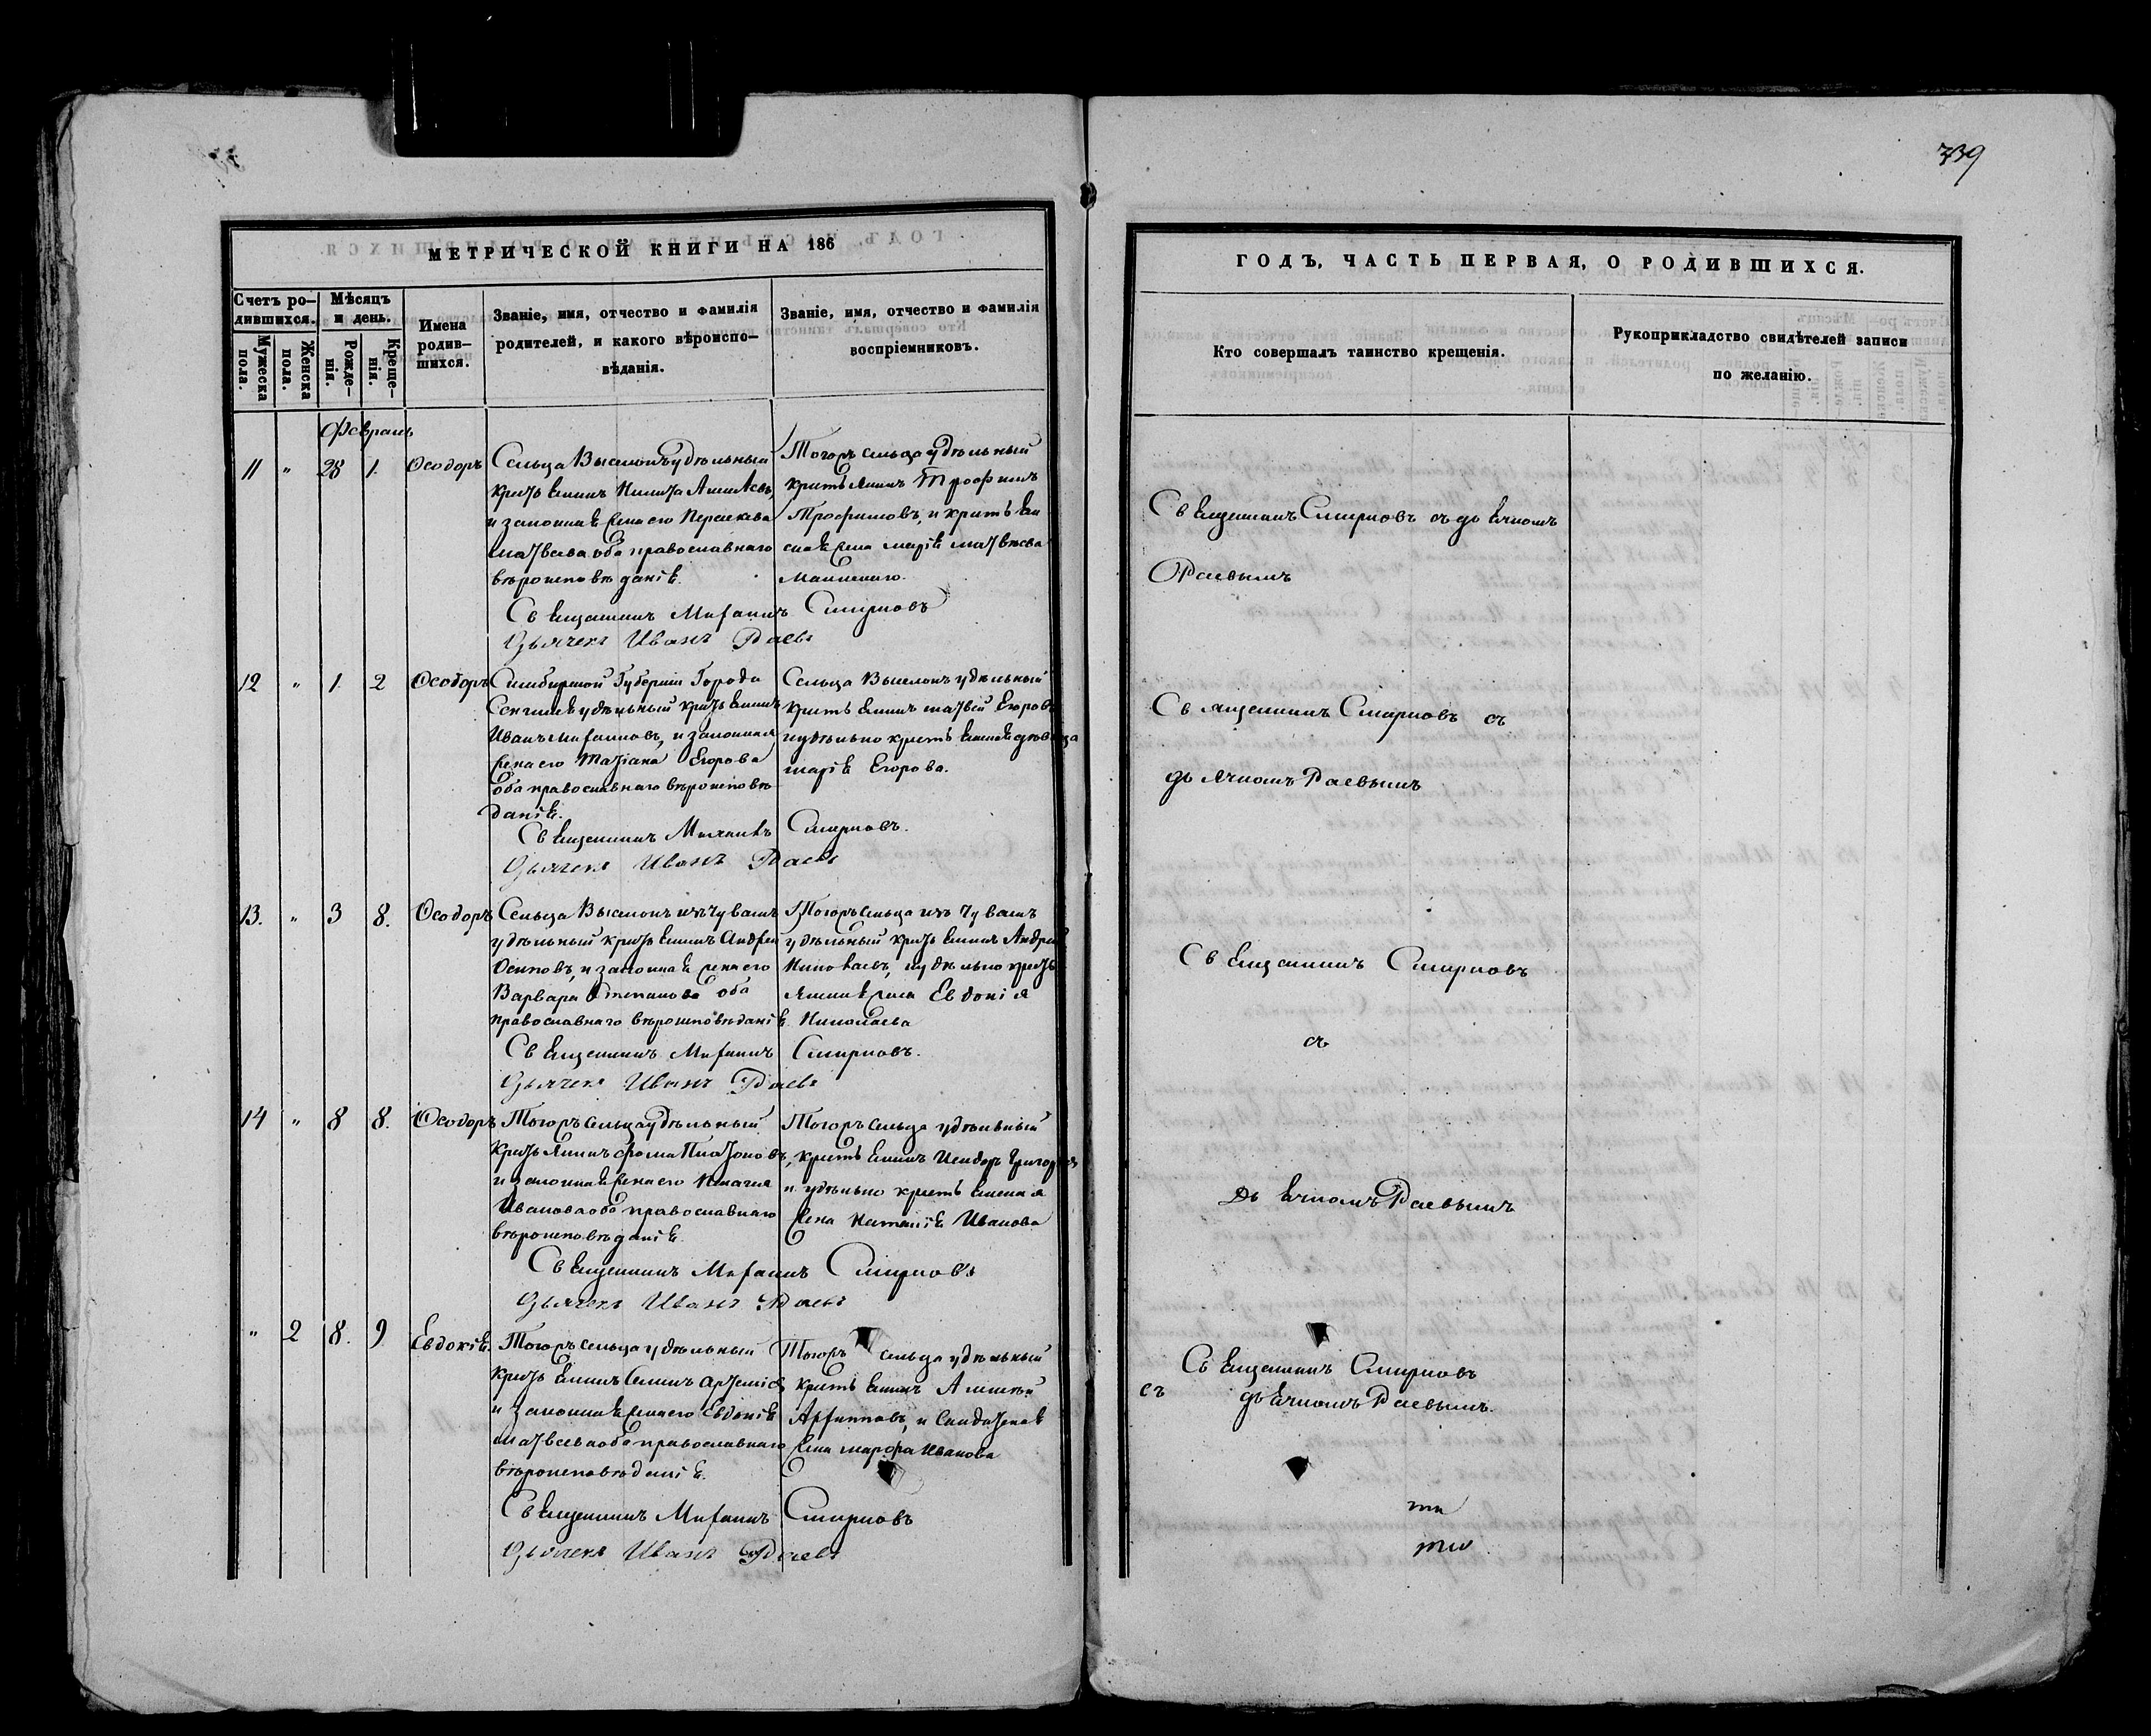 739
МЕТРИЧЕСКОЙ КНИГИ НА 186
Счетъ ро-
дившихся.
Мѣсяцъ
и день.
Мужеска
пола.
Женска
пола.
Рожде-
нія.
Креще-
нія.
Имена
родив-
шихся.
Званіе, имя, отчество и фамилія
родителей, и какого вѣроиспо-
вѣданія.
Званіе, имя, отчество и фамилія
воспріемниковъ.
ГОДЪ, ЧАСТЬ ПЕРВАЯ, О РОДИВШИХСЯ.
Кто совершалъ таинство крещенія.
Рукоприкладство свидѣтелей записи
по желанію.
Февраль
11 " 28 1. Ѳеодоръ
Сельца Выселокъ удѣльный
крестьянинъ Никита
и законная жена его
Матвѣева оба православнаго
вѣроисповѣданія.
Тогожъ сельца удѣльный
крестьянинъ Трофимъ
Трофимовъ, и крестьян
ская жена Марія Матвѣева
Священникъ Смирновъ съ дьячкомъ
Раевымъ
Священникъ Михаилъ Смирновъ
Дьячекъ Иванъ Раевъ
12 " 1 2 Ѳеодоръ
Симбирской Губерніи Города
удѣльный крестьянинъ
Иванъ и законная
жена его Татіана Егорова
оба православнаго вѣроисповѣ
данія.
Сельца Выселокъ удѣльный
крестьянинъ Матвей Егоровъ
дѣвица
Марія Егорова.
Священникъ Смирновъ съ
дьячкомъ Раевымъ
Священникъ Михаилъ Смирновъ.
Дьячекъ Иванъ Раевъ
13. " 3 8. Ѳеодоръ
Сельца Выселокъ изъ чувашъ
удѣльный крестьянинъ Андрей
Осиповъ, и законная жена его
Варвара Степанова оба
православнаго вѣроисповѣданія.
Тогожъ сельца изъ чувашъ
удѣльный крестьянинъ Андрей
Николаевъ, и удѣльно кресть
янина жена Евдокія
Николаева
Священникъ Смирновъ
съ
Священникъ Михаилъ Смирновъ.
Дьячекъ Иванъ Раевъ
14 " 8 8. Ѳеодоръ
Тогожъ сельца удѣльный
крестьянинъ Фома Платоновъ,
и законная жена его
Иванова оба православнаго
вѣроисповѣданія.
Тогожъ сельца удѣльный
крестьянинъ Исидоръ Григорьевъ
и удѣльно крестьянина
жена Наталія Иванова
дьячкомъ Раевымъ
Священникъ Михаилъ Смирновъ
Дьячекъ Иванъ Раевъ
" 2 8. 9 Евдокія.
Тогожъ сельца удѣльный
крестьянинъ
и законная жена его Евдокія
Матвѣева оба православнаго
вѣроисповѣданія.
Тогожъ сельца удѣльный
крестьянинъ
и Солдатская
жена Марфа Иванова
Священникъ Смирновъ
съ дьячкомъ Раевымъ.
Священникъ Михаилъ Смирновъ
Дьячекъ Иванъ Раевъ